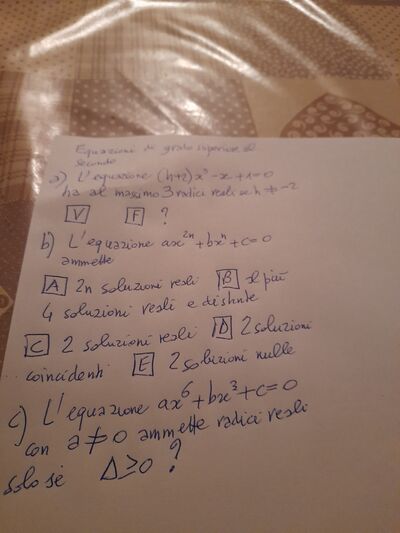 Equazioni di grado superiore al
secondo
a) L'equazione (h+2)x³-x+1=0
ha al massimo 3 radici reali se h ≠ -2
V F ?
b) L'equazione ax²ⁿ+bxⁿ+c=0
ammette
A 2n soluzioni reali B al più
4 soluzioni reali e distinte
C 2 soluzioni reali D 2 soluzioni
coincidenti E 2 soluzioni nulle
c) L'equazione ax⁶+bx³+c=0
con a≠0 ammette radici reali
solo se Δ≥0 ?